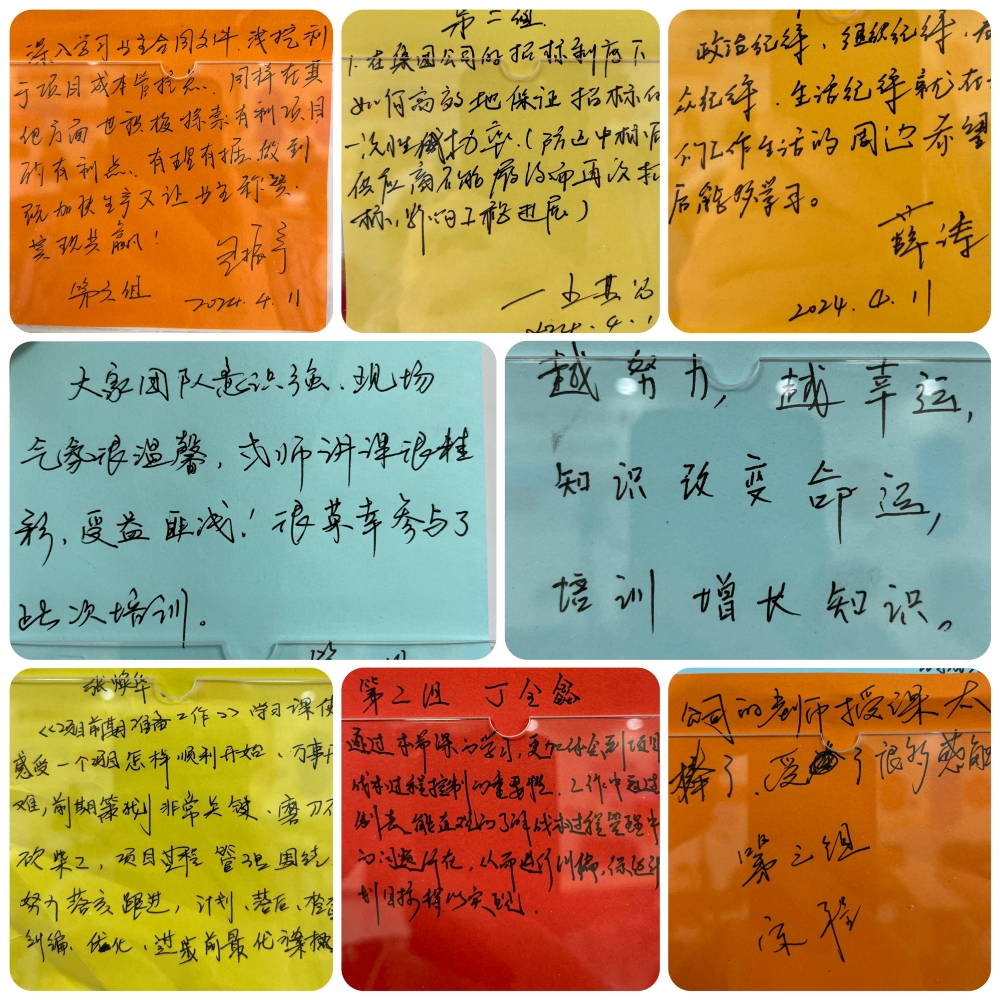 深入学习业主合同文件，浅挖利
于项目成本管控点，同样在其
他方面也积极探索有利项目
的有利点，有理有据，做到
既加快生产又让业主称赞，
实现共赢！
第六组
2024.4.11
第二组
1.在集团公司的招标制度下
如何高效地保证招标的
一次性成功率（防止中标后
供应商不能履约而再次招
标，影响工程进展）
2024.4.1
政治纪律、组织纪律、
众纪律、生活纪律就在
们工作生活的周边希望
后能多学习。
薛涛
2024.4.11
大家团队意识强、现场
气氛很温馨，老师讲课很精
彩，受益匪浅！很荣幸参与了
此次培训。
越努力，越幸运，
知识改变命运，
培训增长知识。
张辉华
《项目前期准备工作》学习课使
感受一个项目怎样顺利开始、万事开
难，前期策划非常关键、磨刀不
砍柴工，项目过程管理围绕
努力落实跟进，计划、落后、检查
纠编、优化、进步前最化方案
第2组 丁全鑫
通过本节课的学习，更加体会到项目
成本过程控制的重要性，工作中通过
列表能直观的了解成本过程管理中
的问题所在，从而进行纠偏，保证计
划目标得以实现。
公司的老师授课太
棒了、受了很多感触
第三组
宋